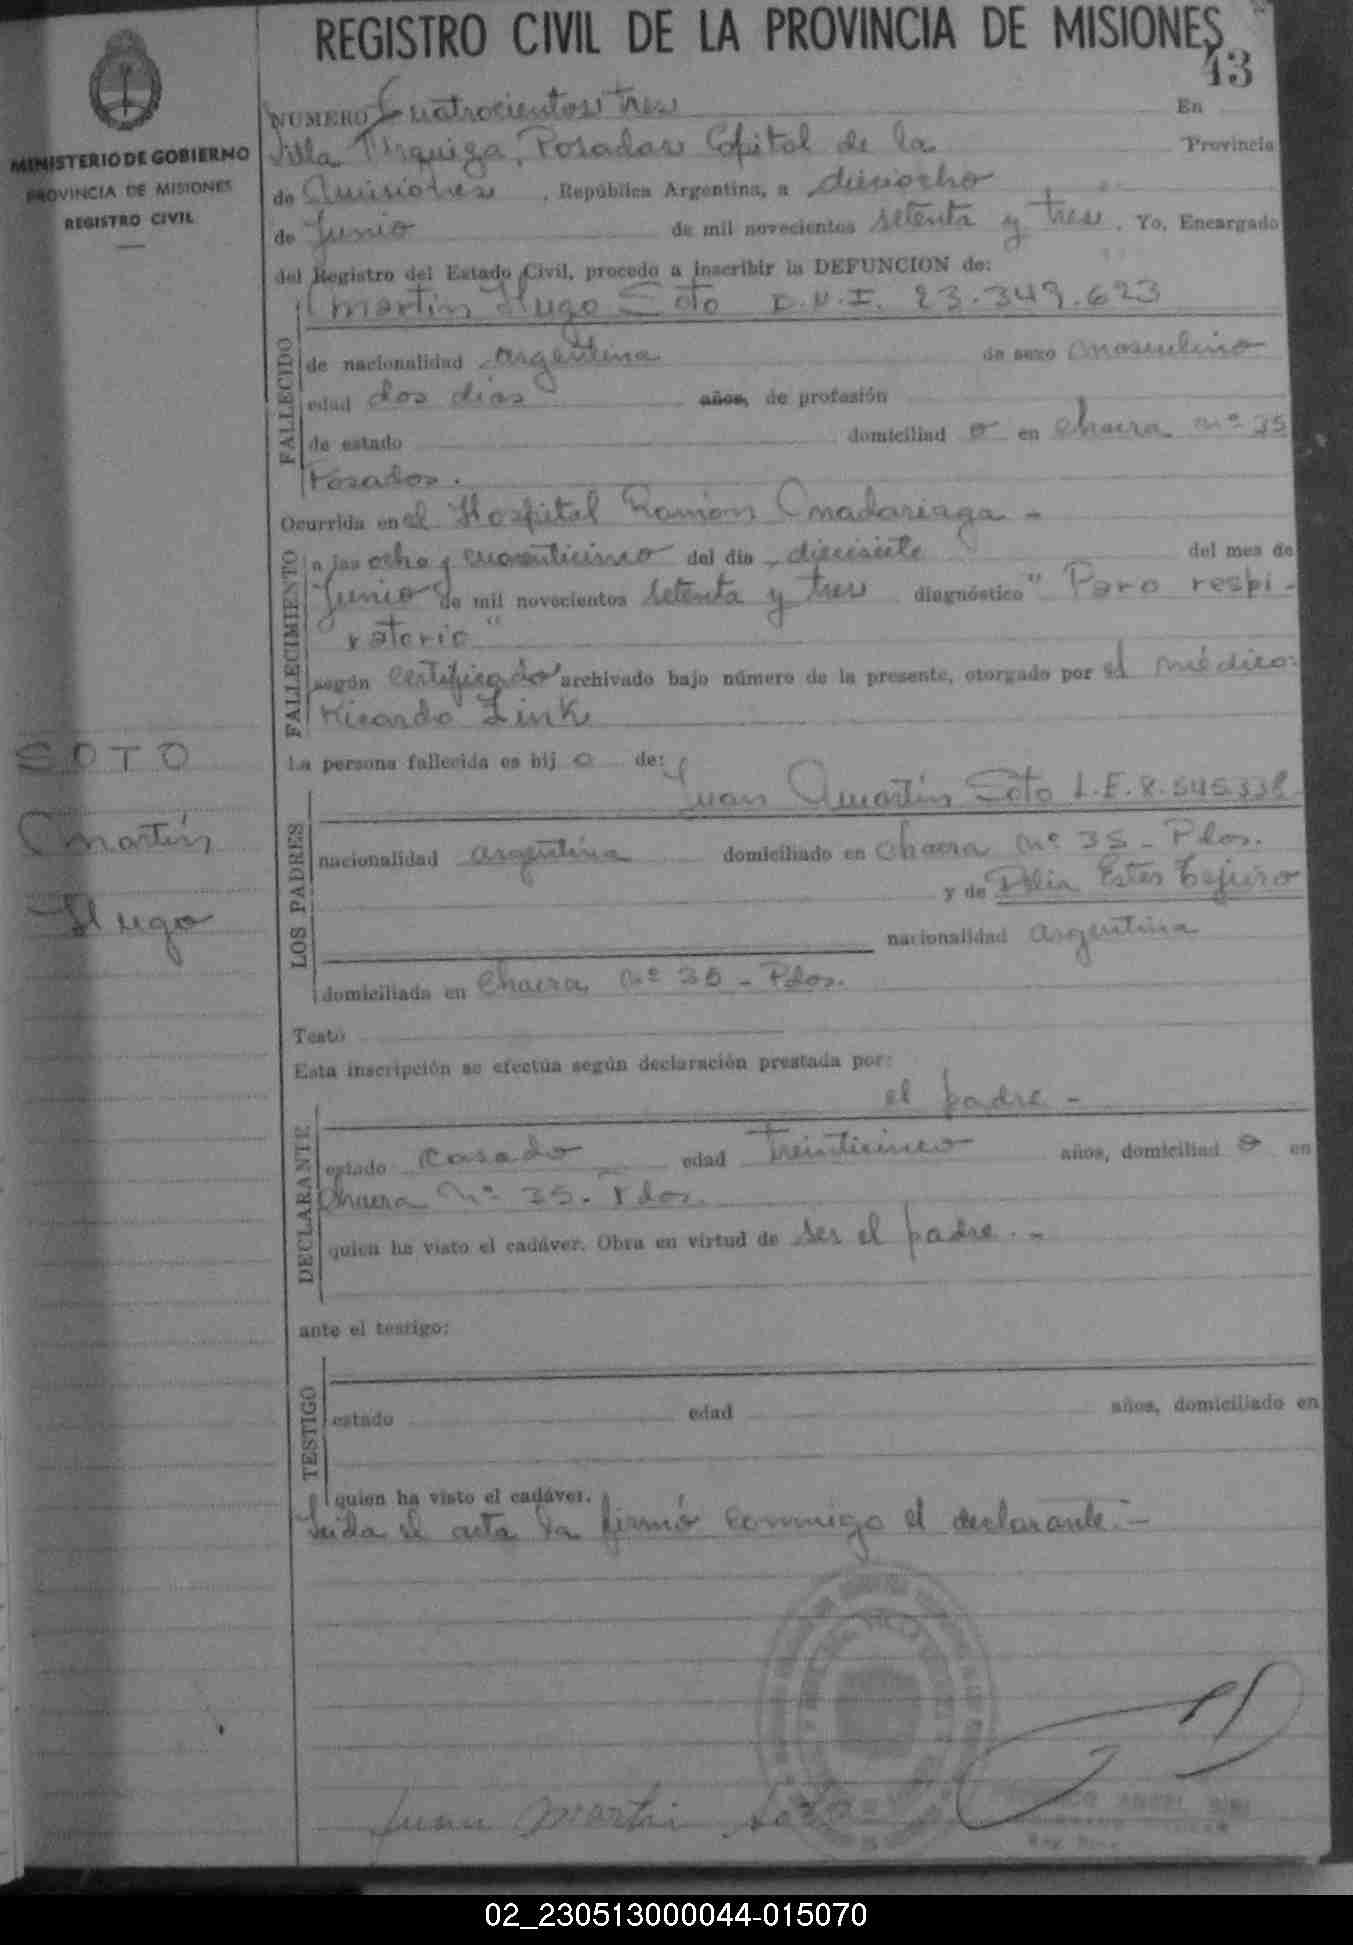 REGISTRO CIVIL DE LA PROVINCIA DE MISIONES
13
MINISTERIO DE GOBIERNO
PROVINCIA DE MISIONES
REGISTRO CIVIL
NUMERO Cuatrocientos tres En
Villa Urquiza, Posadas Capital de la Provincia
de Misiones, República Argentina, a dieciocho
de Junio de mil novecientos setenta y tres. Yo, Encargado
del Registro del Estado Civil, procedo a inscribir la DEFUNCION de:
Martín Hugo Soto D.N.I. 23.349.623
FALLECIDO
de nacionalidad argentina de sexo masculino
edad dos días años, de profesión
de estado domiciliad o en Chacra nº 35
Posadas.
Ocurrida en el Hospital Ramón Madariaga -
FALLECIMIENTO
a las ocho y cuarenticinco del día diecisiete del mes de
Junio de mil novecientos setenta y tres diagnóstico "Paro respi-
ratorio"
según certificado archivado bajo número de la presente, otorgado por el médico:
Ricardo Zink
SOTO
Martín
Hugo
La persona fallecida es hij o de:
LOS PADRES
Juan Martín Soto L.E. 8.545.338
nacionalidad argentina domiciliado en Chacra nº 35 - Pdas.
y de Delia Ester Tejero
nacionalidad argentina
domiciliada en Chacra nº 35 - Pdas.
Testó
Esta inscripción se efectúa según declaración prestada por:
el padre -
DECLARANTE
estado casado edad treinticinco años, domiciliad o en
Chacra Nº 35. Pdas.
quien ha visto el cadáver. Obra en virtud de ser el padre. -
ante el testigo:
TESTIGO
estado edad años, domiciliado en
quien ha visto el cadáver.
Leida el acta la firmó conmigo el declarante. -
Juan Martin Soto
ANGEL
02_230513000044-015070